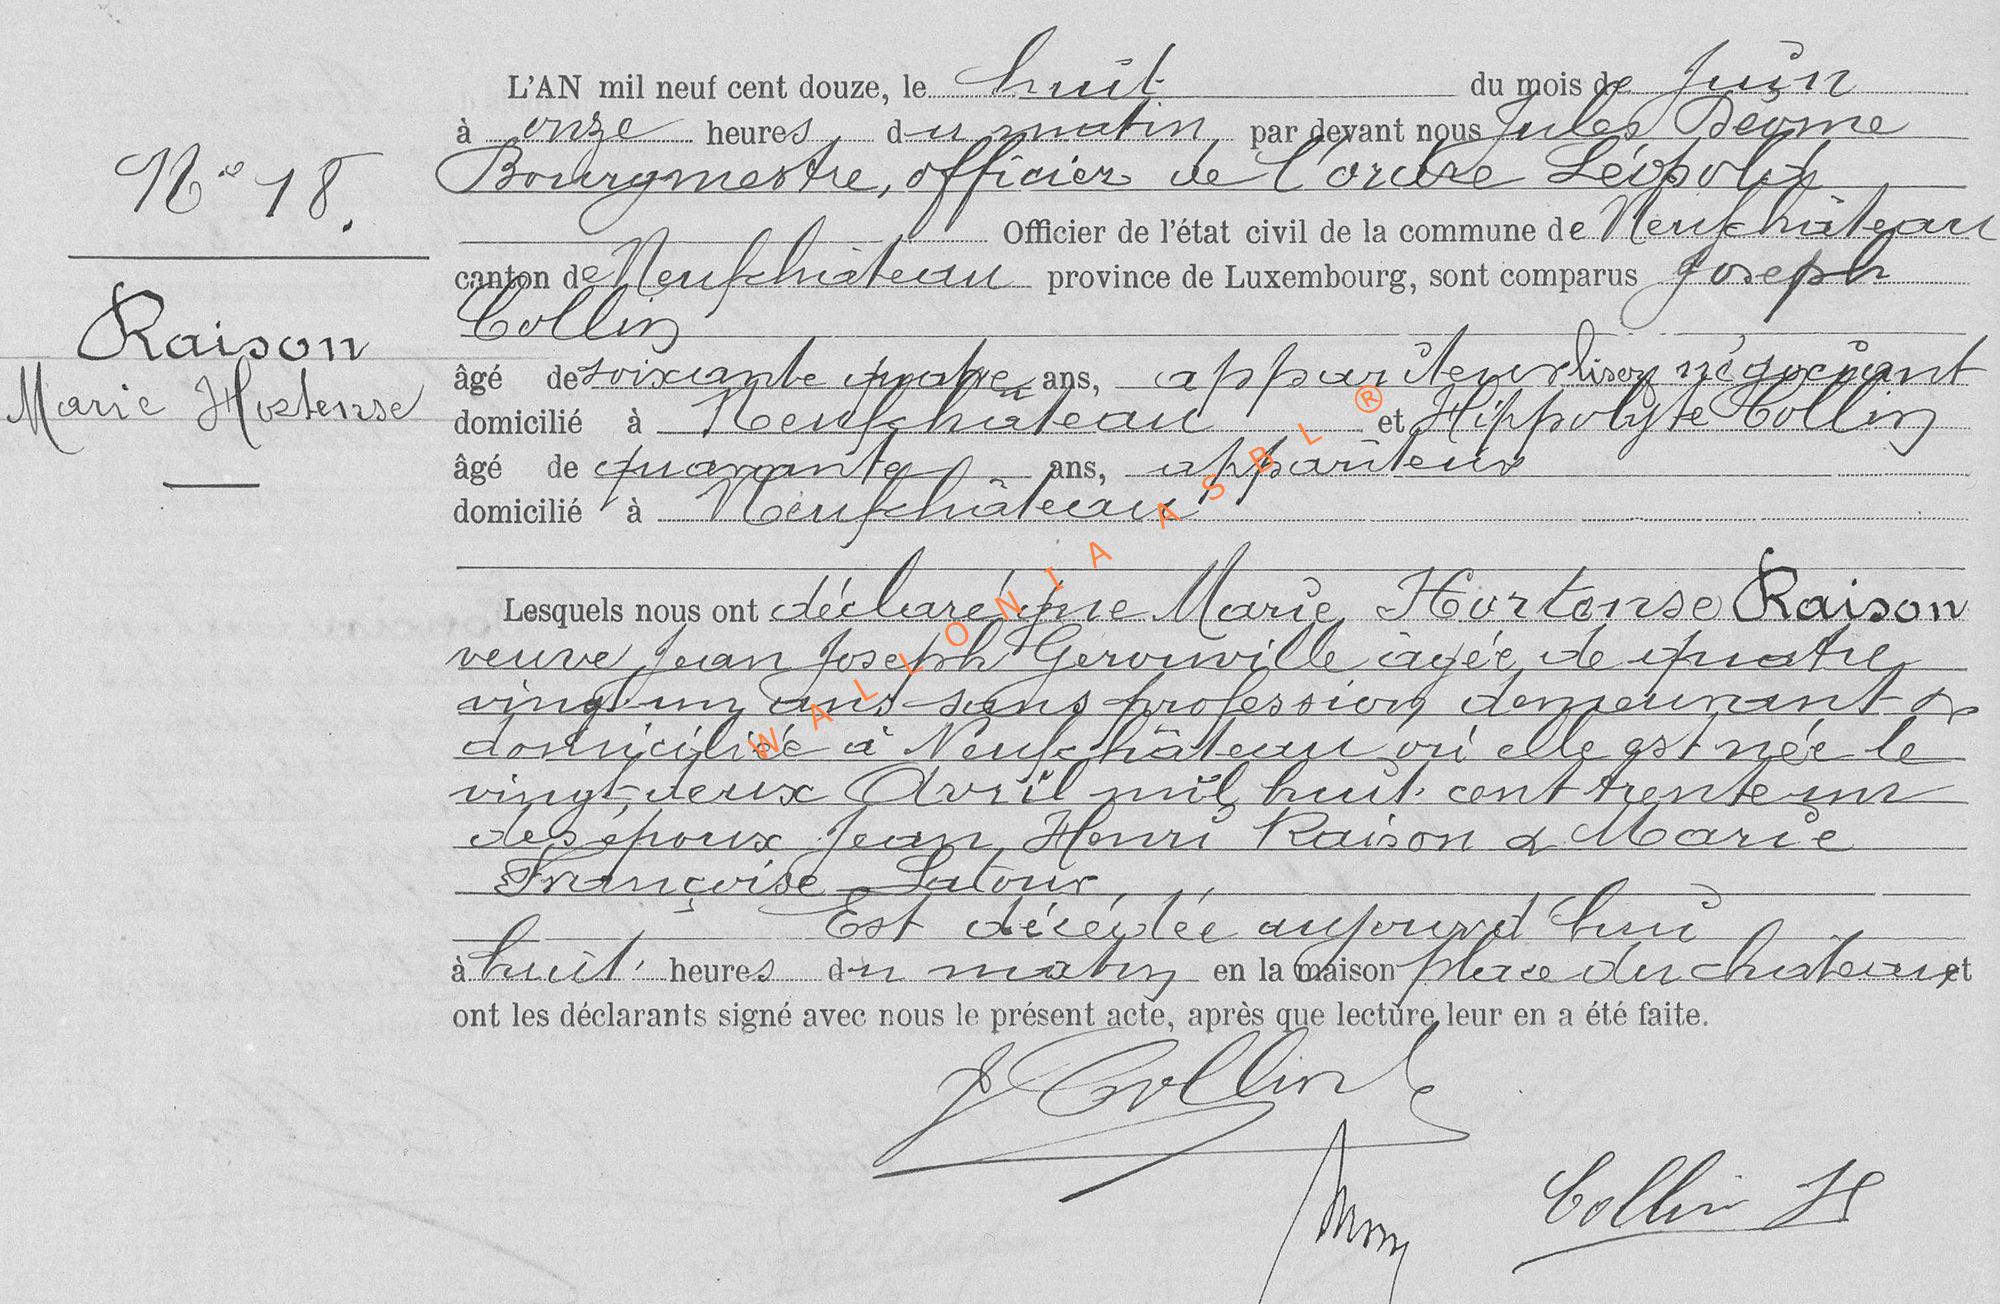 N° 18.
Raison
Marie Hortense
L'AN mil neuf cent douze, le huit du mois de Juin
à onze heures du matin par devant nous Jules
Bourgmestre, officier de l'ordre Léopold
Officier de l'état civil de la commune de Neufchâteau
canton de Neufchâteau province de Luxembourg, sont comparus Joseph
Collin
âgé de soixante quatre ans, appariteur lisez négociant
domicilié à Neufchâteau et Hippolyte Collin
âgé de quarante ans, appariteur
domicilié à Neufchâteau
Lesquels nous ont déclaré que Marie Hortense Raison
veuve Jean Joseph Gerouville âgée de quatre
vingt un ans sans profession demeurant &
domiciliée à Neufchâteau où elle est née le
vingt-deux Avril mil huit cent trente un
des époux Jean Henri Raison & Marie
Françoise Latour
Est décédée aujourd'hui
à huit heures du matin en la maison place du chateau et
ont les déclarants signé avec nous le présent acte, après que lecture leur en a été faite.
J Collin
Collin H
WALLONIA ASBL ®